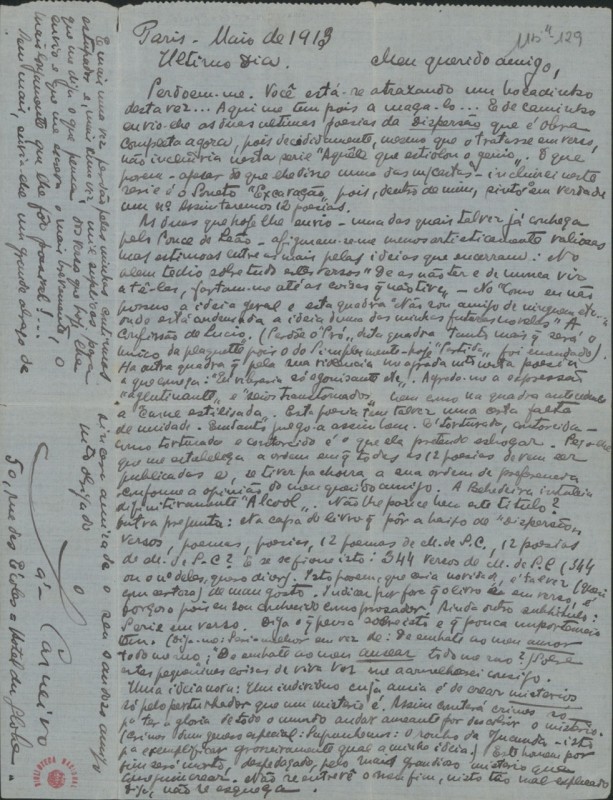 Paris - Maio de 1913
Ultimo Dia.
Ms 129
Meu querido amigo,
Perdoem-me. Você está-se atrazando um bocadinho
desta vez... Aqui me tem pois a maga-lo... E de caminho
envio-lhe as duas ultimas poesias da Dispersão que é obra
completa agora, pois decididamente, mesmo que o tratasse em verso,
não incluiria nesta serie "Aquele que estiolou o genio". O que
porem - apesar do que lhe disse numa das cartas - incluirei nesta
serie é o Soneto "Escavação", pois, dentro de mim, sinto em verdade
um nº. Assim teremos 12 poesias.
As duas que hoje lhe envio - uma das quais talvez já conheça
pelo Ponce de Leão - afiguram-se-me menos artisticamente valiosas
mas estimo-as entre as mais pelas ideias que encerram: No
alem tedio sobretudo estes versos "De as não ter e de nunca vir
a tê-las, fartam-me até as coisas q não tive" - No Como eu não
possuo a ideia geral e esta quadra Não sou amigo de ninguem etc
onde está condensada a ideia duma das minhas futuras novelas "A
Confissão de Lucio. (Perdôe o "Prá" desta quadra tanto mais q será o
unico da plaquette pois o do Simplesmente - hoje "Partida" foi emendado)
Ha outra quadra q pela sua violencia me agrada muito nesta poesia
a que começa: "Eu vibraria só agonisante etc". Agrada-me a expressão
"aglutinante" e "seios transtornados" bem como na quadra antecedente
a "carne estilisada". Esta poesia tem talvez uma certa falta
de unidade. Entanto julgo-a assim bem. É torturada, contorcida -
como torturado e contorcido é o que ela pretende esboçar. Peço-lhe
que me estabeleça a ordem em q todas as 12 poesias devem ser
publicadas e, se tiver pachorra a sua ordem de preferencia
conforme a opinião do meu querido amigo. A Bebedeira intitula-se
definitivamente "Alcool". Não lhe parece bem este titulo?
Outra pergunta: Na capa do livro q pôr abaixo de "Dispersão"
versos, poemas, poesias, 12 poemas de M. de S.C., 12 poesias
de M. de S.C.? E se se fizesse isto: 344 versos de M. de S.C. (344
ou o nº deles, quero dizer). Isto porem, que seria novidade, é talvez (quasi
com certeza) de mau gosto. Indicar por fora q o livro é em verso, é
forçoso pois eu sou conhecido como prosador. Ainda outro subtitulo:
Serie em verso. Diga o q pensa sobre isto e q pouca importancia
tem. (Diga-me: Seria melhor em vez de: De embate ao meu amor
todo me ruo: "De embate ao meu ancear todo me ruo?) Sobre
estas pequeninas coisas de viva voz me aconselharei consigo.
Uma ideia nova: Um individuo cuja ancia é de crear misterios
só pelo perturbador que um misterio é. Assim cometerá crimes só
pª ter a gloria de todo o mundo andar ameante por descobrir o misterio.
(Crimes dum genero especial: Suponhamos: o roubo da Gioconda - isto
pª exemplificar grosseiramente qual a minha ideia). Este homem por
fim será morto, despedaçado, pelo mais grandioso misterio que
conseguiu crear. Não se entrevê o nem fim, nisto tão mal explicado
Diga, não se esqueça.
E mais uma vez perdão pelas minhas continuas
estopadas e, mais uma vez, mil suplicas para
que me diga o que pensa dos versos que hoje lhe
envio e que me escreva o mais brevemente, o
mais longamente que lhe fôr possivel!...
Sem mais, envia-lhe um grande abraço de
sincera amizade o seu ardoroso amigo
mtº obrigado
o
Sá-Carneiro
50, rue des Écoles o Hotel du Globe.
BIBLIOTECA NACIONAL